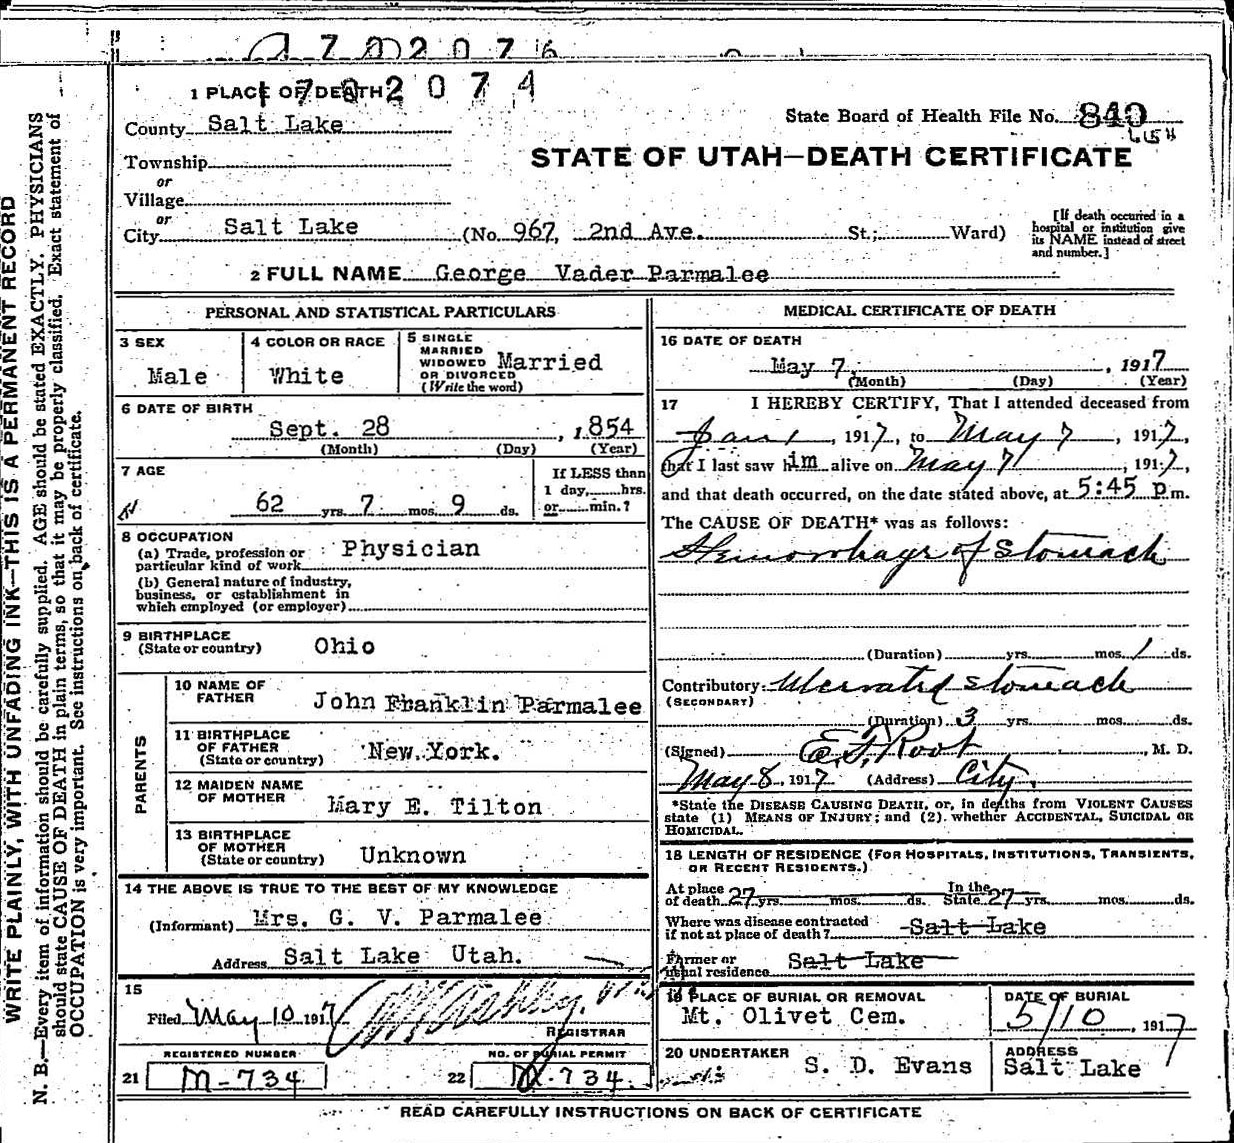 1702076
1 PLACE OF DEATH 1702074
County Salt Lake
State Board of Health File No. 840
Township
STATE OF UTAH—DEATH CERTIFICATE
or
Village
or
City Salt Lake (No. 967, 2nd Ave. St.; Ward)
[If death occurred in a hospital or institution give its NAME instead of street and number.]
2 FULL NAME George Vader Parmalee
PERSONAL AND STATISTICAL PARTICULARS
3 SEX
Male
4 COLOR OR RACE
White
5 SINGLE MARRIED WIDOWED OR DIVORCED (Write the word) Married
6 DATE OF BIRTH
Sept. 28, 1854
(Month) (Day) (Year)
7 AGE
62 yrs. 7 mos. 9 ds.
If LESS than
1 day, hrs.
or min.?
8 OCCUPATION
(a) Trade, profession or
particular kind of work Physician
(b) General nature of industry,
business, or establishment in
which employed (or employer)
9 BIRTHPLACE
(State or country) Ohio
PARENTS
10 NAME OF
FATHER John Franklin Parmalee
11 BIRTHPLACE
OF FATHER
(State or country) New York.
12 MAIDEN NAME
OF MOTHER Mary E. Tilton
13 BIRTHPLACE
OF MOTHER
(State or country) Unknown
14 THE ABOVE IS TRUE TO THE BEST OF MY KNOWLEDGE
(Informant) Mrs. G. V. Parmalee
Address Salt Lake Utah.
15
Filed May 10 1917
REGISTRAR
REGISTERED NUMBER
21 M-734
NO. OF BURIAL PERMIT
22 M-734.
MEDICAL CERTIFICATE OF DEATH
16 DATE OF DEATH
May 7, , 1917
(Month) (Day) (Year)
17 I HEREBY CERTIFY, That I attended deceased from
Jan 1, 1917, to May 7, 1917,
that I last saw him alive on May 7, 1917,
and that death occurred, on the date stated above, at 5:45 p.m.
The CAUSE OF DEATH* was as follows:
Hemorrhage of Stomach
(Duration) yrs. mos. 1 ds.
Contributory: Ulcerated Stomach
(SECONDARY)
(Duration) 3 yrs. mos. ds.
(Signed) E. F. Root, M. D.
May 8, 1917 (Address) City.
*State the DISEASE CAUSING DEATH, or, in deaths from VIOLENT CAUSES
state (1) MEANS OF INJURY; and (2) whether ACCIDENTAL, SUICIDAL OR
HOMICIDAL.
18 LENGTH OF RESIDENCE (FOR HOSPITALS, INSTITUTIONS, TRANSIENTS,
OR RECENT RESIDENTS.)
At place
of death 27 yrs. mos. ds. In the State 27 yrs. mos. ds.
Where was disease contracted
if not at place of death? Salt Lake
Former or
usual residence Salt Lake
19 PLACE OF BURIAL OR REMOVAL
Mt. Olivet Cem.
DATE OF BURIAL
5/10, 1917
20 UNDERTAKER
S. D. Evans
ADDRESS
Salt Lake
READ CAREFULLY INSTRUCTIONS ON BACK OF CERTIFICATE
WRITE PLAINLY, WITH UNFADING INK—THIS IS A PERMANENT RECORD
N. B.—Every item of information should be carefully supplied. AGE should be stated EXACTLY. PHYSICIANS
should state CAUSE OF DEATH in plain terms, so that it may be properly classified. Exact statement of
OCCUPATION is very important. See instructions on back of certificate.